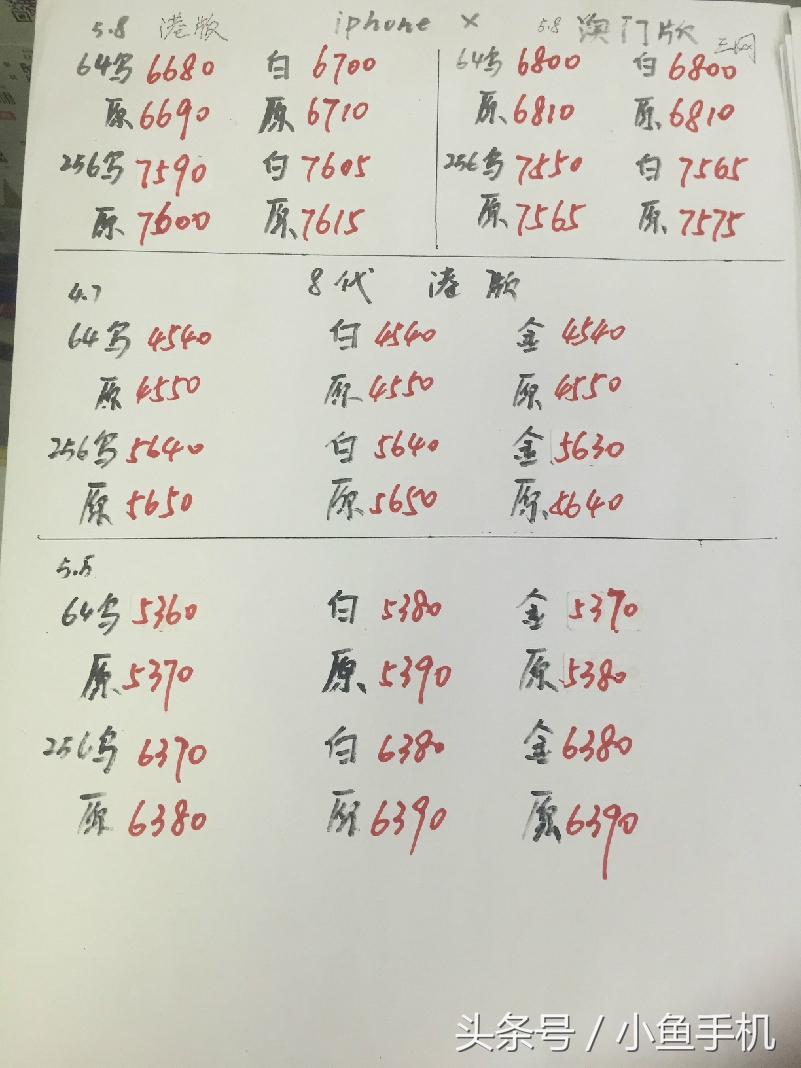 5.8 港版 iphone x 5.8 澳门版 三网
64乌 6680 白 6700 64乌 6800 白 6800
原 6690 原 6710 原 6810 原 6810
256乌 7590 白 7605 256乌 7550 白 7565
原 7600 原 7615 原 7565 原 7575
4.7 8代 港版
64乌 4540 白 4540 金 4540
原 4550 原 4550 原 4550
256乌 5640 白 5640 金 5630
原 5650 原 5650 原 5640
5.5
64乌 5360 白 5380 金 5370
原 5370 原 5390 原 5380
256乌 6370 白 6380 金 6380
原 6380 原 6390 原 6390
头条号 / 小鱼手机